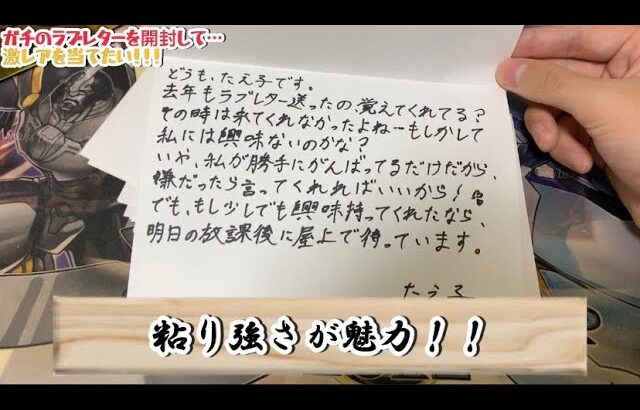 ガチのラブレターを開封して…
激レアを当てたい!!!
どうも、たえ子です。
去年もラブレター送ったの覚えてくれてる?
その時は来てくれなかったよね…もしかして
私には興味ないのかな?
いや、私が勝手にがんばってるだけだから、
嫌だったら言ってくれればいいから!
でも、もし少しでも興味持ってくれたなら、
明日の放課後に屋上で待っています。
たえ子
粘り強さが魅力!!